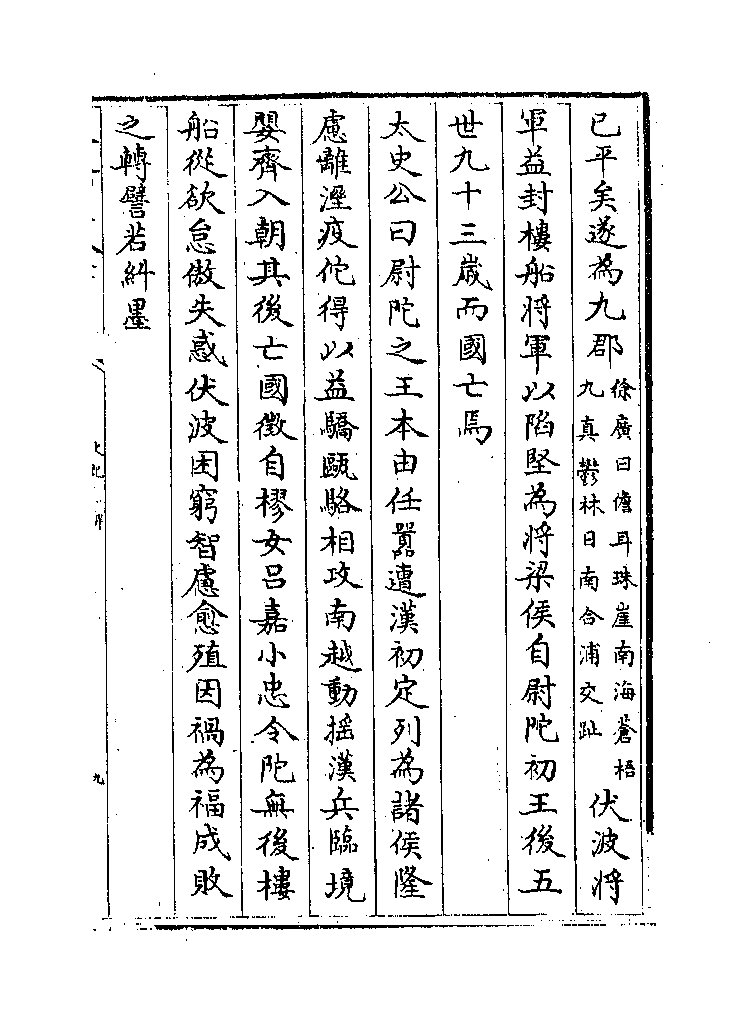 已平矣遂為九郡徐廣曰儋耳珠崖南海蒼梧九真鬱林日南合浦交趾伏波將
軍益封樓船將軍以陷堅為將梁侯自尉陀初王後五
世九十三歲而國亡焉
太史公曰尉陀之王本由任囂遭漢初定列為諸侯隆
慮離溼疫佗得以益驕甌駱相攻南越動摇漢兵臨境
嬰齊入朝其後亡國徵自樛女吕嘉小忠令陀無後樓
船從欲怠傲失惑伏波困窮智慮愈殖因禍為福成敗
之轉譬若糾墨
九